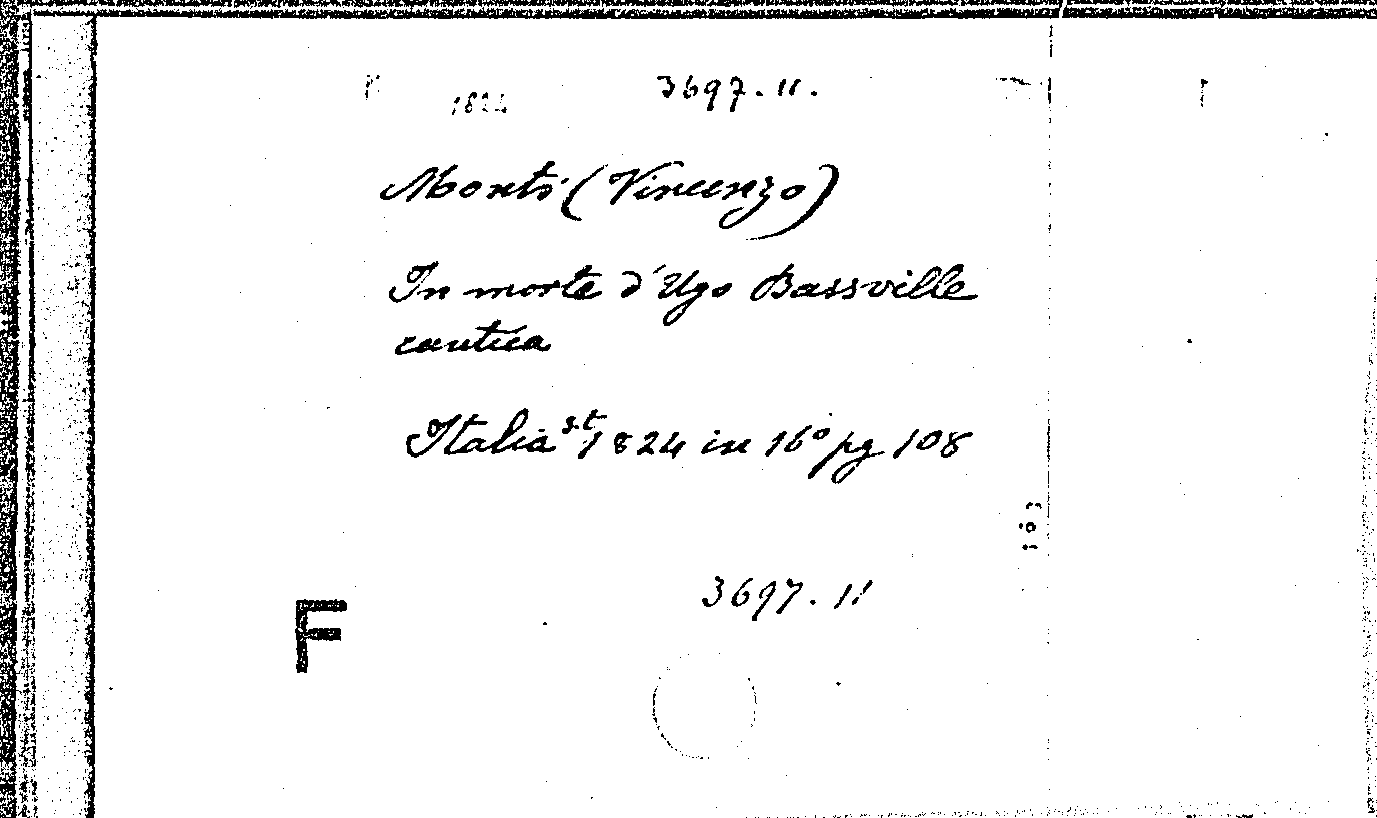 1824 3697.11.
Monti (Vincenzo)
In morte d'Ugo Bassville
cantica
Italia s.t. 1824 in 16° pg 108
3697.11
F